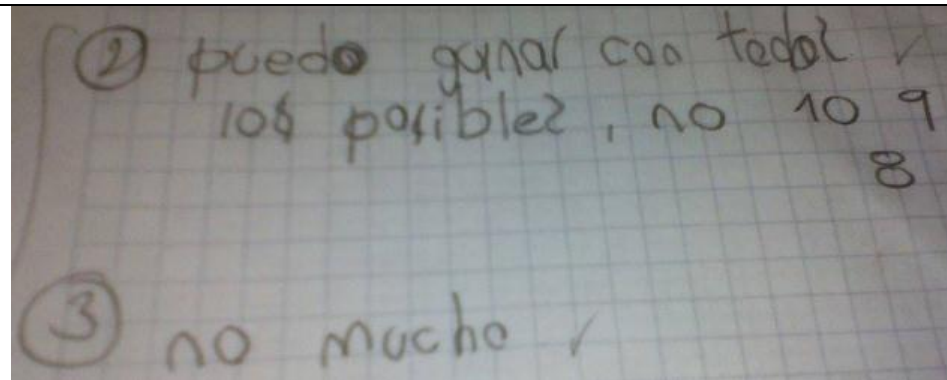 ② puedo ganar con todos ✓
los posibles, no 10 9
8
③ no mucho ✓